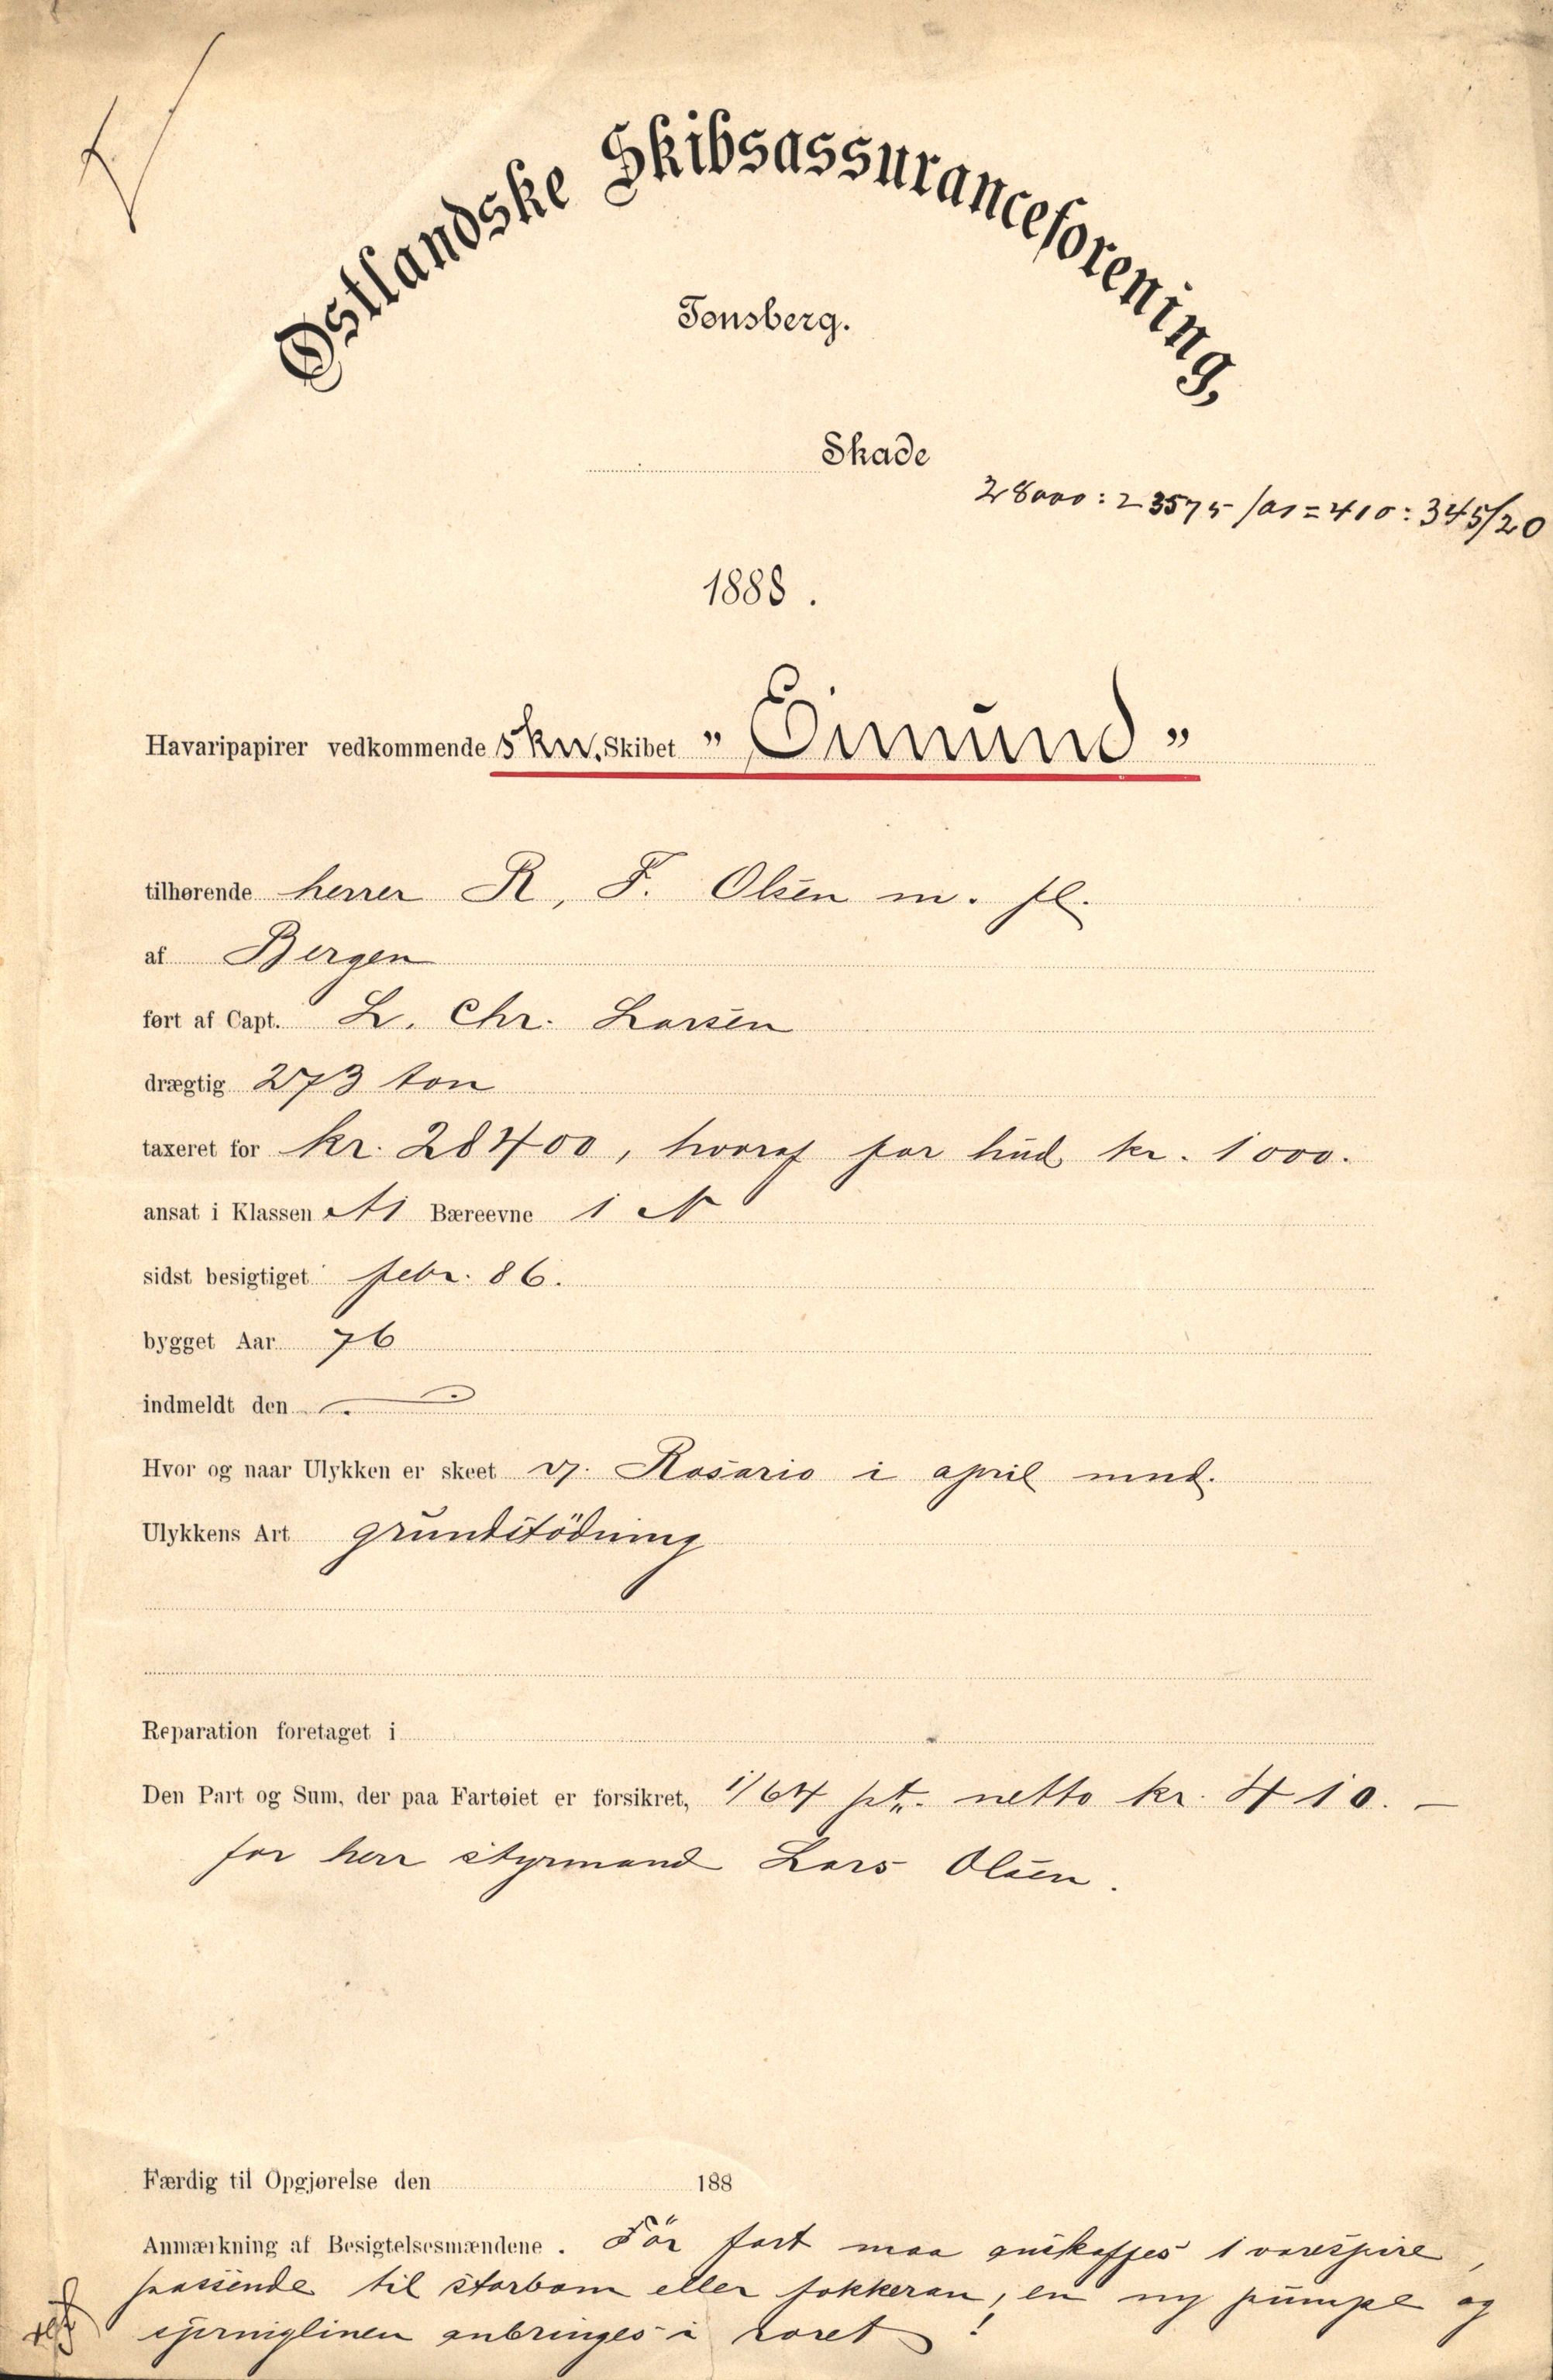 Østlandske Skibsassuranceforening,
Tønsberg.
Skade
28000 : 23575 /as = 410 : 345/20
1888.
Havaripapirer vedkommende skn. Skibet „Eimund”
tilhørende herrer R, F. Olsen m. fl.
af Bergen
ført af Capt. L. Chr. Larsen
drægtig 273 ton
taxeret for kr. 28400, hvoraf for hud kr. 1000.
ansat i Klassen A1 Bæreevne 1 N
sidst besigtiget febr. 86.
bygget Aar 76
indmeldt den
Hvor og naar Ulykken er skeet v. Rosario i april mnd.
Ulykkens Art grundstödning
Reparation foretaget i
Den Part og Sum, der paa Fartøiet er forsikret, 1/64 pt. netto kr. 410. —
for herr styrmand Lars Olsen.
Færdig til Opgjørelse den 188
Anmærkning af Besigtelsesmændene. För fart maa anskaffes 1 varespire,
passende til storbom eller fokkeraa, en ny pumpe og
anbringes i roret!